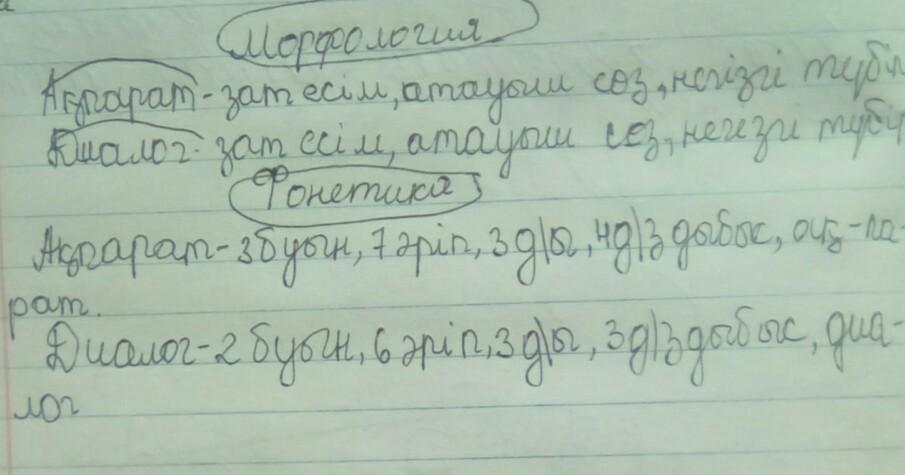 Морфология
Ақпарат-зат есім, атауыш сөз, негізгі түбір
Диалог-зат есім, атауыш сөз, негізгі түбір
Фонетика
Ақпарат-3 буын, 7 әріп, 3 д\ы, 4д\з дыбыс, ақ-па-
рат.
Диалог-2 буын, 6 әріп, 3 д\ы, 3д\з дыбыс, диа-
лог